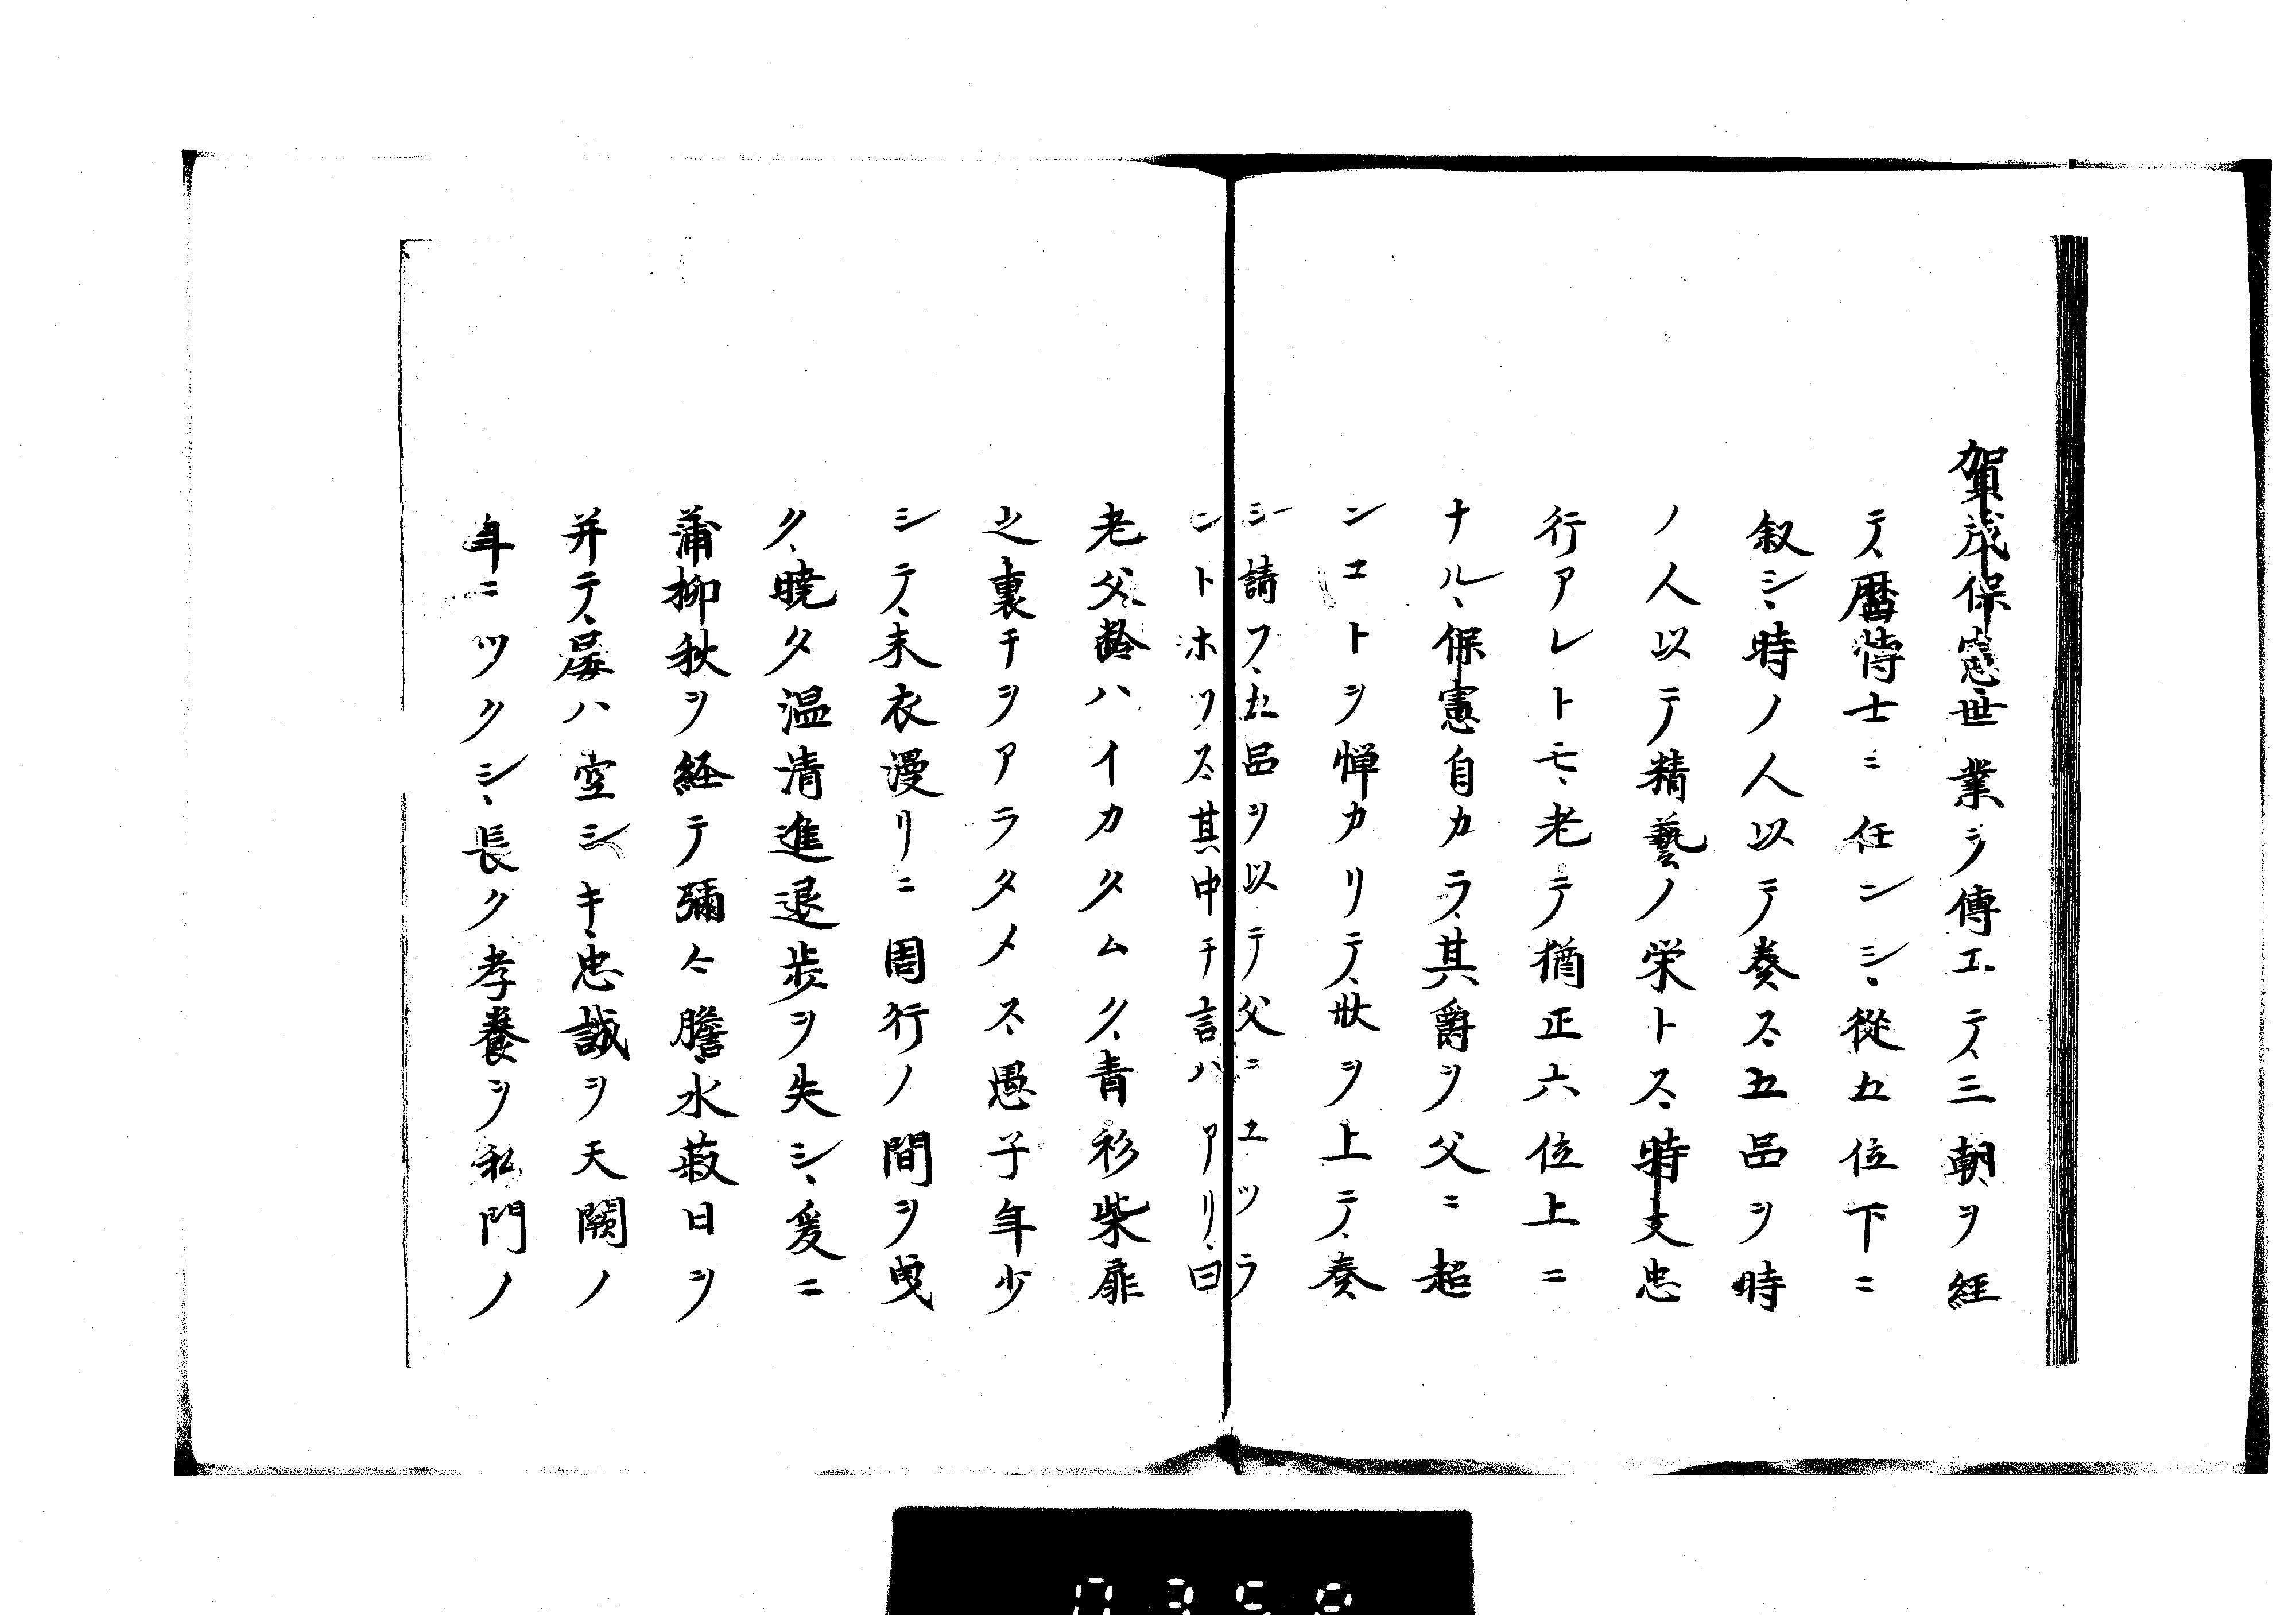 賀茂保憲世業ヲ傳エテ、三朝ヲ経
テ、暦博士ニ任シ、從五位下ニ
叙シ、時ノ人以テ奏ス、五品ヲ時
ノ人以テ精藝ノ栄トス、時支忠
行アレトモ、老テ猶正六位上ニ
ナル、保憲自カラ、其爵ヲ父ニ超
ンコトヲ憚カリテ、状ヲ上テ、奏
シ請フ、五品ヲ以テ父ニユツラ
ントホツス、其申チ言ハアリ、曰
老父齢ハイカタムク、青衫柴扉
之裏チヲアラタメス、愚子年少
シテ、末衣漫リニ周行ノ間ヲ曳
ク、曉タ温清進退歩ヲ失シ、爰ニ
蒲柳秋ヲ経テ彌々膽水菽日ヲ
并テ、屡ハ空シキ、忠誠ヲ天闕ノ
年ニツクシ、長ク孝養ヲ私門ノ